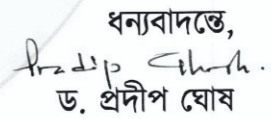 ধন্যবাদান্তে,
Pradip Ghosh.
ড. প্রদীপ ঘোষ